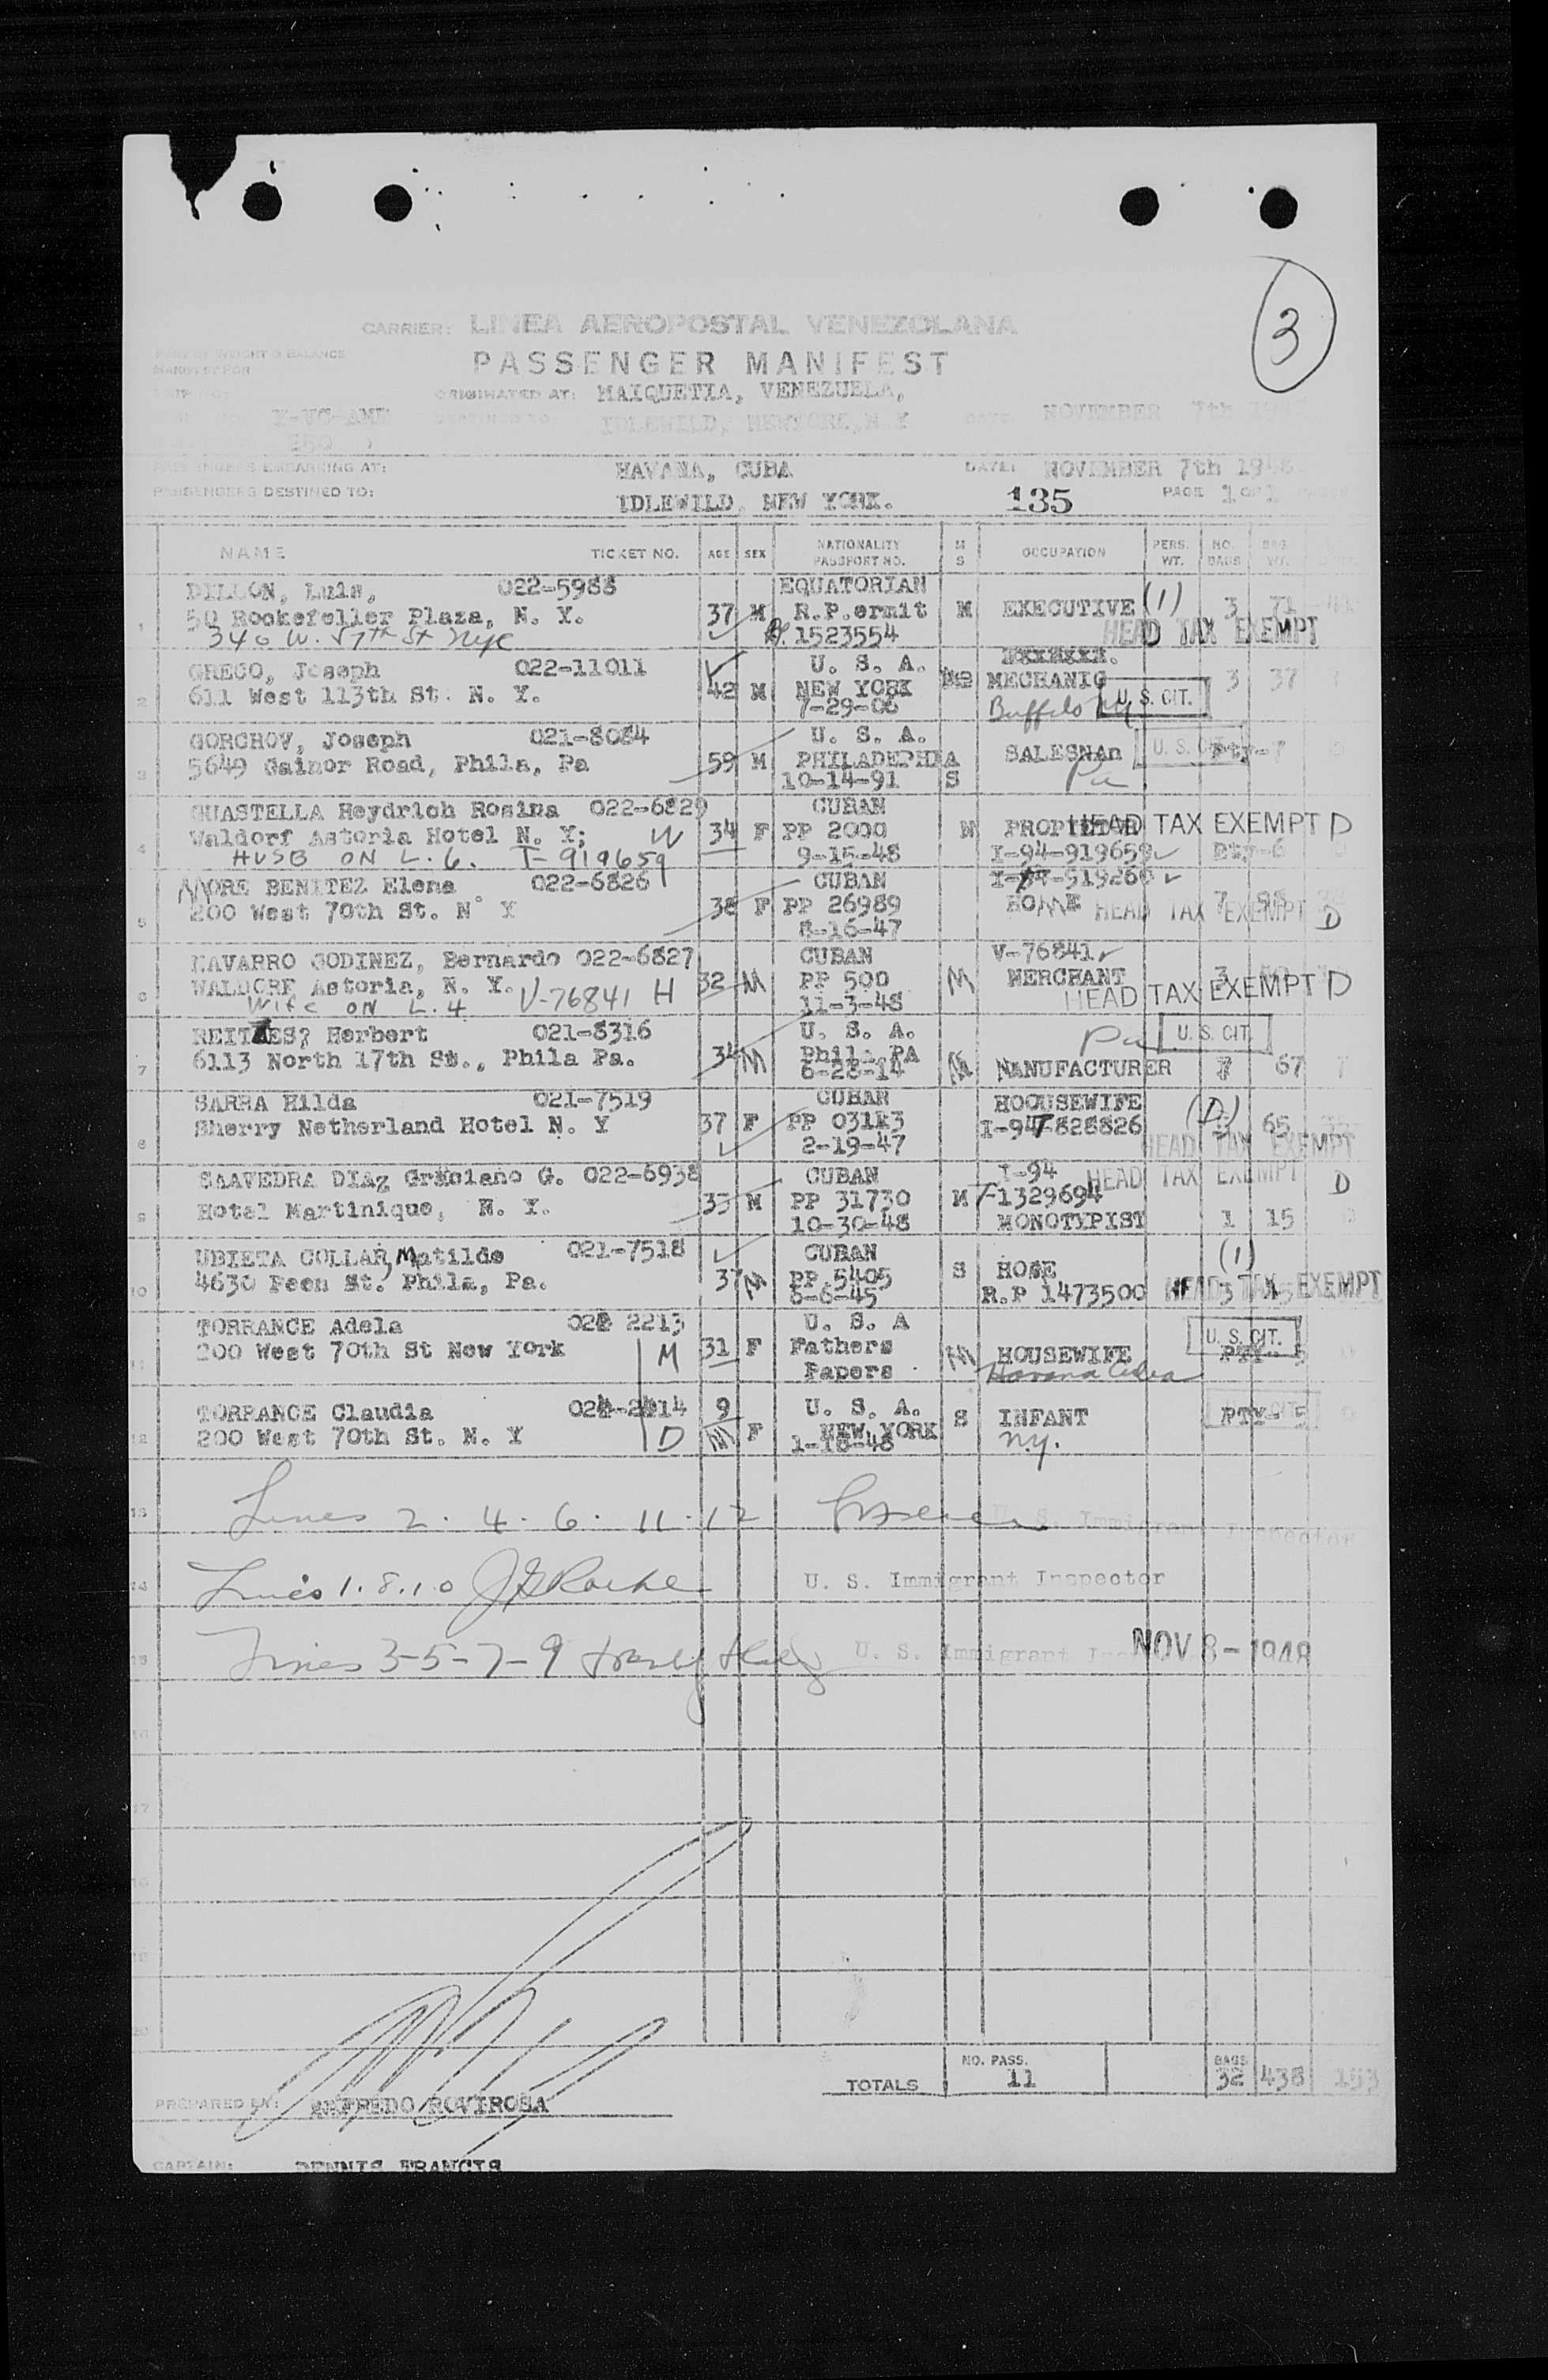 3
CARRIER: LINEA AEROPOSTAL VENEZOLANA
PART OF WEIGHT & BALANCE
MANIFEST FOR
PASSENGER MANIFEST
ORIGINATED AT: MAIQUETIA, VENEZUELA,
Y-VC-AME DESTINED TO: IDLEWILD, NEWYORK, N.Y DATE: NOVEMBER 7th
250
PASSENGERS EMBARKING AT: HAVANA, CUBA DATE: NOVEMBER 7th 1948
PASSENGERS DESTINED TO: IDLEWILD, NEW YORK. 135 PAGE 1 OF 1
NAME TICKET NO. AGE SEX NATIONALITY PASSPORT NO. M S OCCUPATION PERS. WT. NO. BAGS BAG. WT.
DILLON, Luis, 022-5988 EQUATORIAN
1 50 Rockefeller Plaza, N. Y. 37 M R.P.ermit M EXECUTIVE (1) 3 71
340 W. 57th St nyc 1523554 HEAD TAX EXEMPT
GRECO, Joseph 022-11011 U. S. A.
2 611 West 113th St. N. Y. 42 M NEW YORK MECHANIC 3 37
7-29-06 Buffalo ny U. S. CIT.
GORCHOV, Joseph 021-8084 U. S. A.
3 5649 Gainor Road, Phila, Pa 59 M PHILADEPHIA SALESNAn U. S. CIT. Pty-7
10-14-91 S Pa
GUASTELLA Heydrich Rosina 022-6829 CUBAN
4 Waldorf Astoria Hotel N. Y; W 34 F PP 2000 M HEAD TAX EXEMPT D
HUSB ON L. 6. T-919659 9-15-48 I-94-919659 Pty-6
MORE BENITEZ Elena 022-6826 CUBAN I-94-919260
5 200 West 70th St. N Y 38 F PP 26989 HOME 7 98 HEAD TAX EXEMPT D
8-16-47
NAVARRO GODINEZ, Bernardo 022-6827 CUBAN V-76841
6 WALDORF Astoria, N. Y. V-76841 H 32 M PP 500 M MERCHANT 3
Wife ON L. 4 11-3-48 HEAD TAX EXEMPT D
REITZES, Herbert 021-8316 U. S. A. Pa U. S. CIT.
7 6113 North 17th St., Phila Pa. 34 M Phila PA M MANUFACTURER 7 67 7
6-28-14
SARRA Hilda 021-7519 CUBAN HOOUSEWIFE (D)
8 Sherry Netherland Hotel N. Y 37 F PP 03143 I-94T-828826 65
2-19-47 HEAD TAX EXEMPT
SAAVEDRA DIAz Graciano G. 022-6938 CUBAN I-94 HEAD TAX EXEMPT D
9 Hotel Martinique, N. Y. 33 M PP 31730 M T-1329694
10-30-48 MONOTYPIST 1 15
UBIETA COLLAR, Matilde 021-7518 CUBAN (1)
10 4630 Peen St. Phila, Pa. 37 M PP 5405 S HOME
6-6-45 R.P 1473500 HEAD TAX EXEMPT
TORRANCE Adela 022 2213 U. S. A U. S. CIT.
11 200 West 70th St New York M 31 F Fathers M HOUSEWIFE PTY- 5
Papers Havana Cuba
TORRANCE Claudia 022-2214 9 U. S. A.
12 200 West 70th St. N. Y D M F NEW YORK S INFANT PTY- 5
1-18-48 n.y.
13 Lines 2. 4. 6. 11. 12 U. S. Immigrant Inspector
14 Lines 1. 8. 10 U. S. Immigrant Inspector
15 Lines 3-5-7-9 U. S. Immigrant NOV 8 - 1948
16
17
18
19
20
NO. PASS. BAGS
TOTALS 11 32 438 153
PREPARED BY: ALFREDO ROVIROSA
CAPTAIN: DENNIS FRANCIS